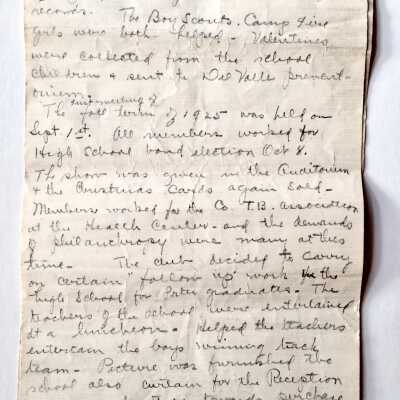 records. The Boy Scouts, Camp Fire
girls were both helped - Valentines
were collected from the school
children & sent to Del Valle prevent-
orium.
The first meeting of
fall term of 1925 was held on
Sept 1st. All members worked for
High School bond election Oct 8.
The show was given in the Auditorium
& the Christmas cards again sold -
Members worked for the Co. T.B. association
at the Health Center - and the demands
of philanthropy were many at this
time - The club decided to carry
on certain "follow up" work in the
high School for Pres. graduates - The
teachers of the school were entertained
at a luncheon - Helped the teachers
entertain the boys winning track
team - Picture was furnished the
school also curtain for the Reception
towards purchase